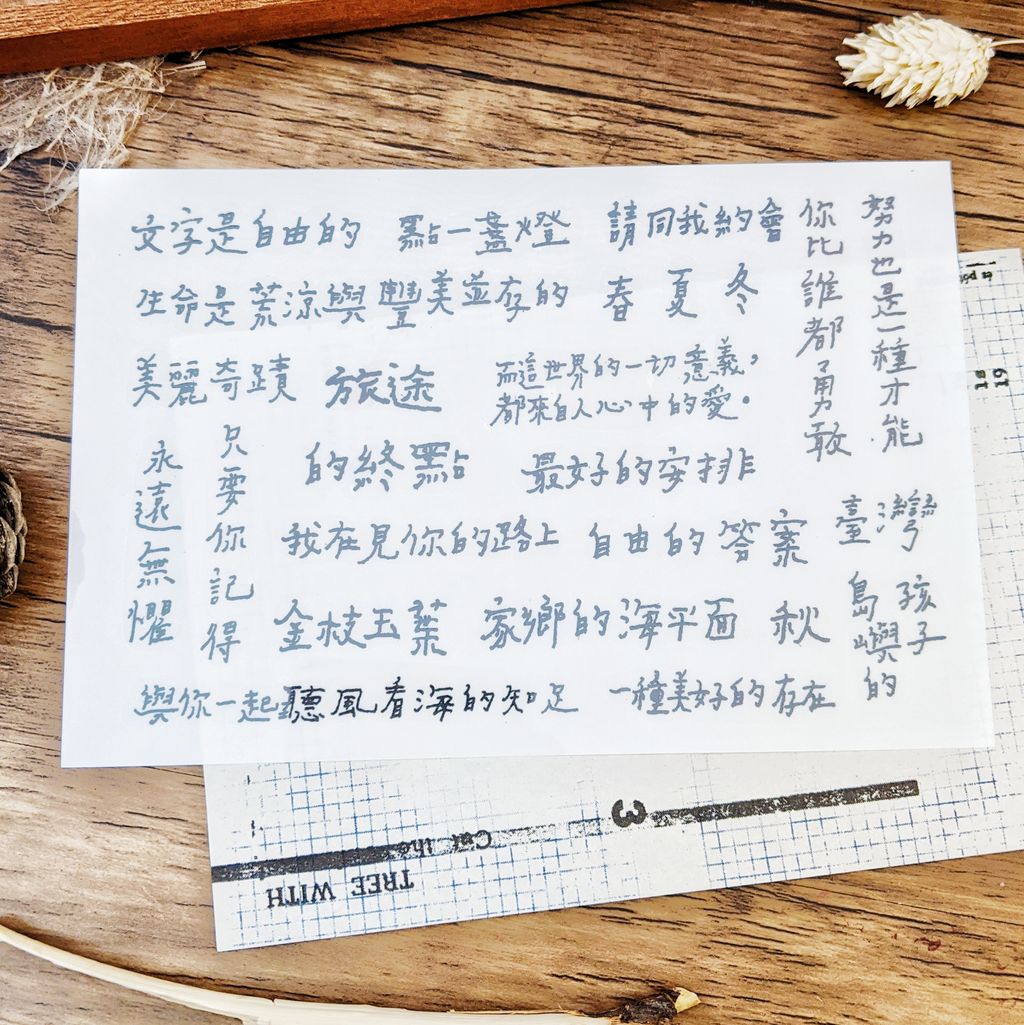 文字是自由的 點一盞燈 請同我約會
生命是荒涼與豐美並存的 春 夏 冬
美麗奇蹟 旅途 而這世界的一切意義，
都來自人心中的愛。
你比誰都勇敢
努力也是一種才能
的終點 最好的安排
只要你記得
永遠無懼
我在見你的路上 自由的答案
臺灣
島嶼的
孩子
金枝玉葉 家鄉的海平面 秋
與你一起聽風看海的知足 一種美好的存在
3
Cut the
TREE WITH